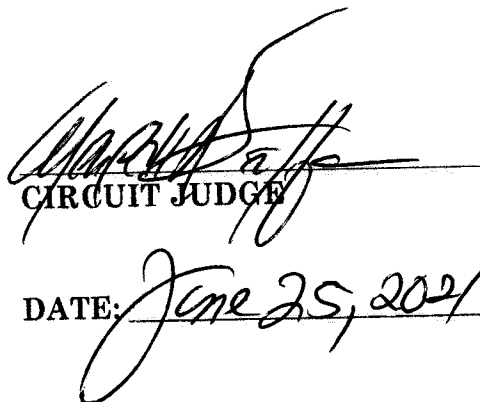 CIRCUIT JUDGE
DATE: June 25, 2021